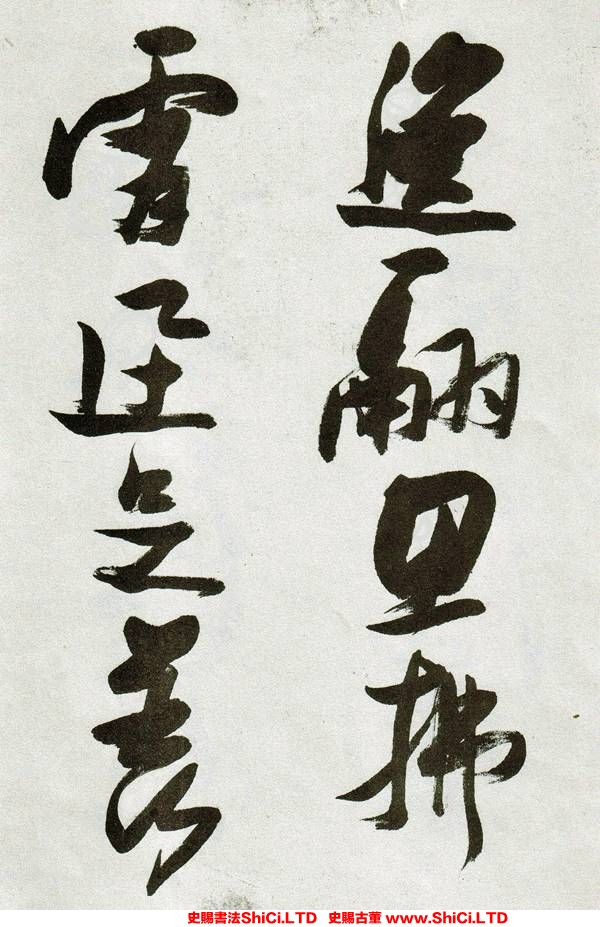 逸翮思拂
霄迅足羨
史賜書法ShiCi.LTD 史賜古董 www.ShiCi.LTD